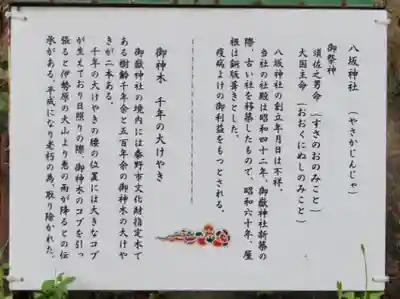 八坂神社 (やさかじんじゃ)
御祭神
須佐之男命 (すさのおのみこと)
大国主命 (おおくにぬしのみこと)
八坂神社の創立年月日は不祥。
当社の社殿は昭和四十二年、御嶽神社新築の
際、古い社を移築したもので、昭和六十年、屋
根は銅版葺きとした。
疫病よけの御利益をもつとされる。
御神木 千年の大けやき
御嶽神社の境内には秦野市文化財指定木で
ある樹齢千年余と五百年余の御神木の大けや
きが二本ある。
千年の大けやきの腰の位置には大きなコブ
が生えており日照りの際、御神木のコブを引っ
張ると伊勢原の大山より恵の雨が降るとの伝
承がある。平成になり老朽の為、取り除かれた。